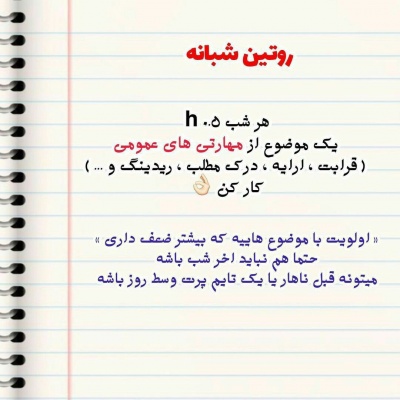 روتین شبانه
هر شب ۰.۵ h
یک موضوع از مهارتی های عمومی
( قرابت ، ارایه ، درک مطلب ، ریدینگ و ... )
کار کن 👌🏻
« اولویت با موضوع هاییه که بیشتر ضعف داری »
حتما هم نباید اخر شب باشه
میتونه قبل ناهار یا یک تایم پرت وسط روز باشه